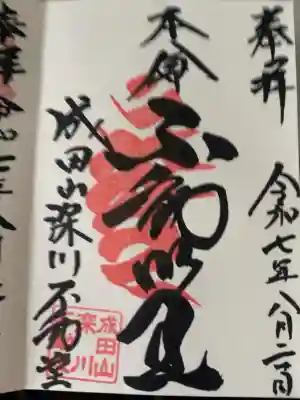 奉拝
令和七年八月二十日
本尊
不動明王
成田山深川不動堂
成田山
深川
奉拝 令和七年八月